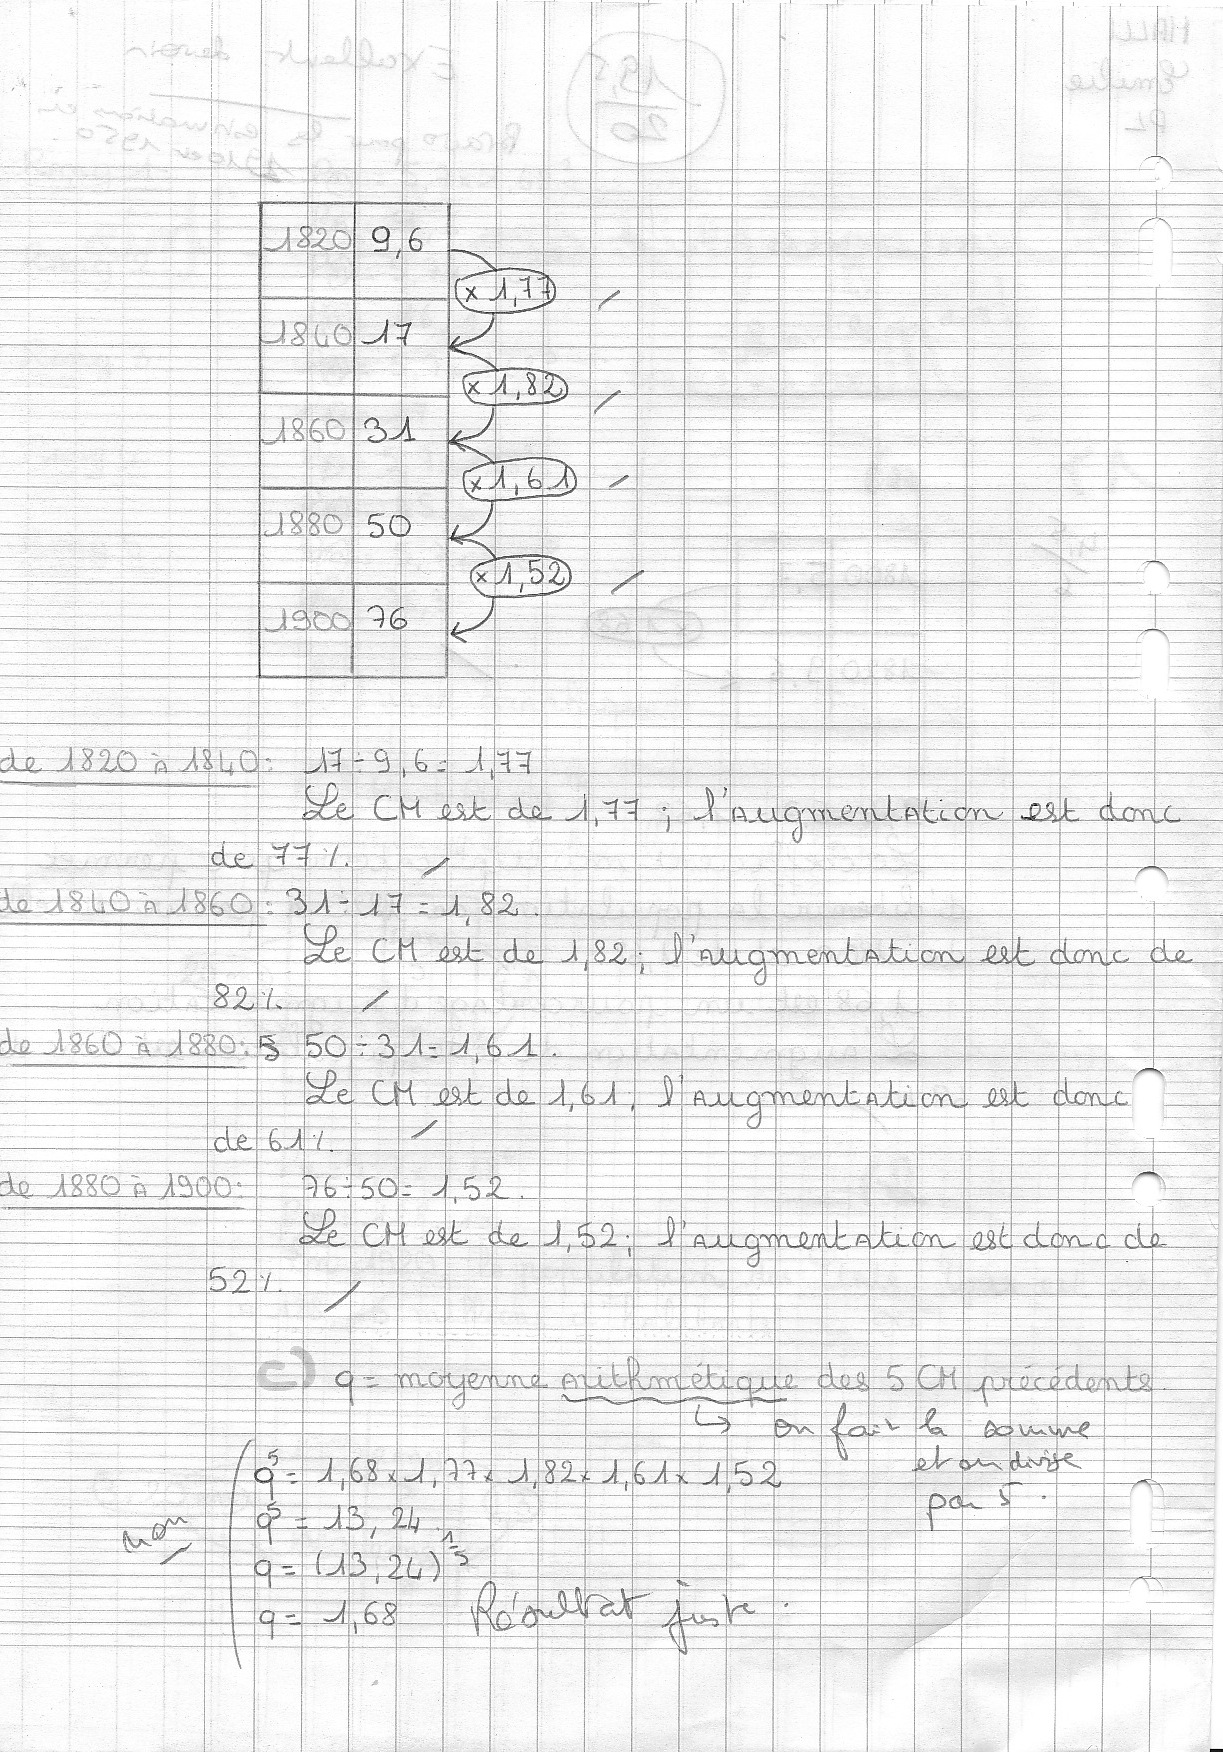 1820 9,6
× 1,77
1840 17
× 1,82
1860 31
× 1,61
1880 50
× 1,52
1900 76
de 1820 à 1840: 17÷9,6= 1,77
Le CM est de 1,77 ; l'augmentation est donc
de 77%.
de 1840 à 1860: 31÷17=1,82.
Le CM est de 1,82; l'augmentation est donc de
82%.
de 1860 à 1880: 50÷31=1,61.
Le CM est de 1,61; l'augmentation est donc
de 61%.
de 1880 à 1900: 76÷50= 1,52.
Le CM est de 1,52; l'augmentation est donc de
52%.
c) q= moyenne arithmétique des 5 CM précédents.
↳ on fait la somme
et on divise
par 5.
q⁵= 1,68×1,77×1,82×1,61×1,52
q⁵= 13,24.
non
q= (13,24)^1/5
q= 1,68 Résultat juste.